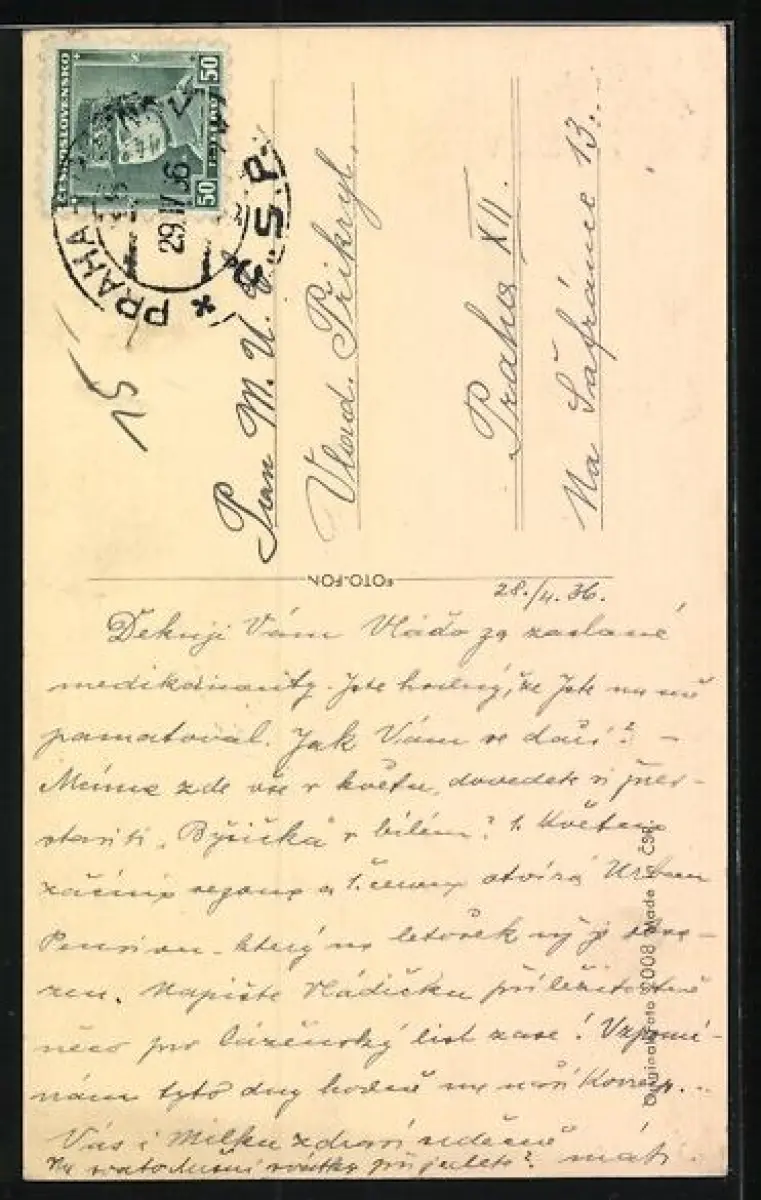 ČESKOSLOVENSKO
50 50
PRAHA
29.IV.36
Pan M. U. C.
Vlad. Přikryl.
Praha XII.
Na Šafránce 13.
15
FOTO-FON
28./4. 36.
Děkuji Vám Vláďo za zaslané
medikamenty. Jste hodný, že jste na mě
pamatoval. Jak Vám se daří? –
Máme zde vše v květu, dovedete si před-
staviti „Býčička" v bílém? 1. Května
začíná sezona a 1. června otvírá Urban
Pension – který na letošek
zen. Napište Vládíčku příležitostně
něco pro lázeňský list zase! Vzpomí-
nám tyto dny hodně na naši Konexp...
Vás i Milku zdraví srdečně
Na svatodušní svátky přijedete?
Original-Foto 2008 Made ČSR